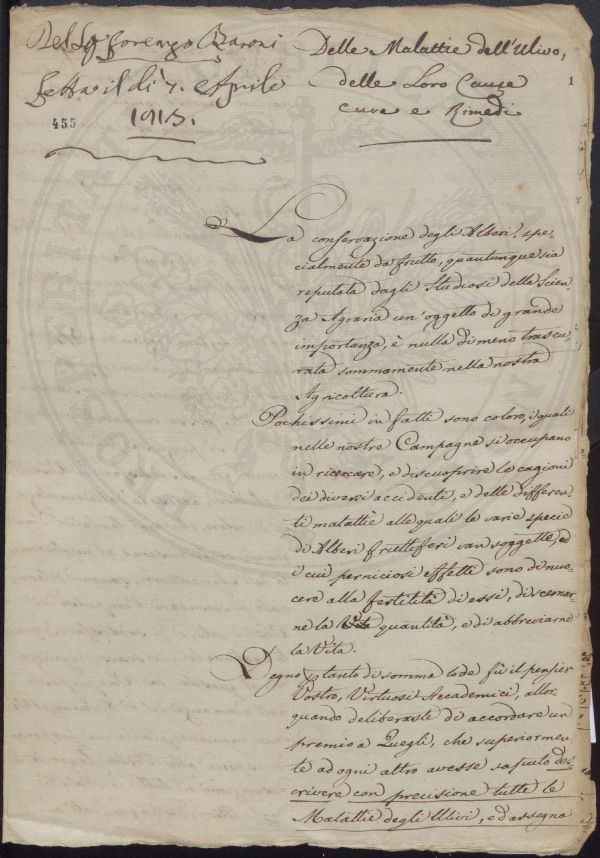 Del Sg.r Lorenzo Baroni
Letta il dì 7. Aprile
1813.
455
Delle Malattie dell'Ulivo,
delle Loro Cause
cure e Rimedi
1
La conservazione degli Alberi, spe-
cialmente da frutto, quantunque sia
reputata dagli Studiosi della Scien-
za Agraria un'oggetto di grande
importanza, è nulla di meno trascu-
rata sommamente nella nostra
Agricoltura.
Pochissimi in fatti sono coloro, i quali
nelle nostre Campagne si occupano
in ricercare, e discuoprire le cagioni
dei diversi accidenti, e delle differen-
ti malattìe alle quali le varie specie
di Alberi fruttiferi van soggette, ed
i cui perniciosi effetti sono di nuo-
cere alla fertilità di essi, di scemar-
ne la quantità, e di abbreviarne
la Vita.
Degno tanto di somma lode fù il pensier
Vostro, Virtuosi Accademici, allor-
quando deliberaste di accordare un
premio a Quegli, che superiormen-
te ad ogni altro avesse saputo des-
crivere con precisione tutte le
Malattie degli Ulivi, ed assegna